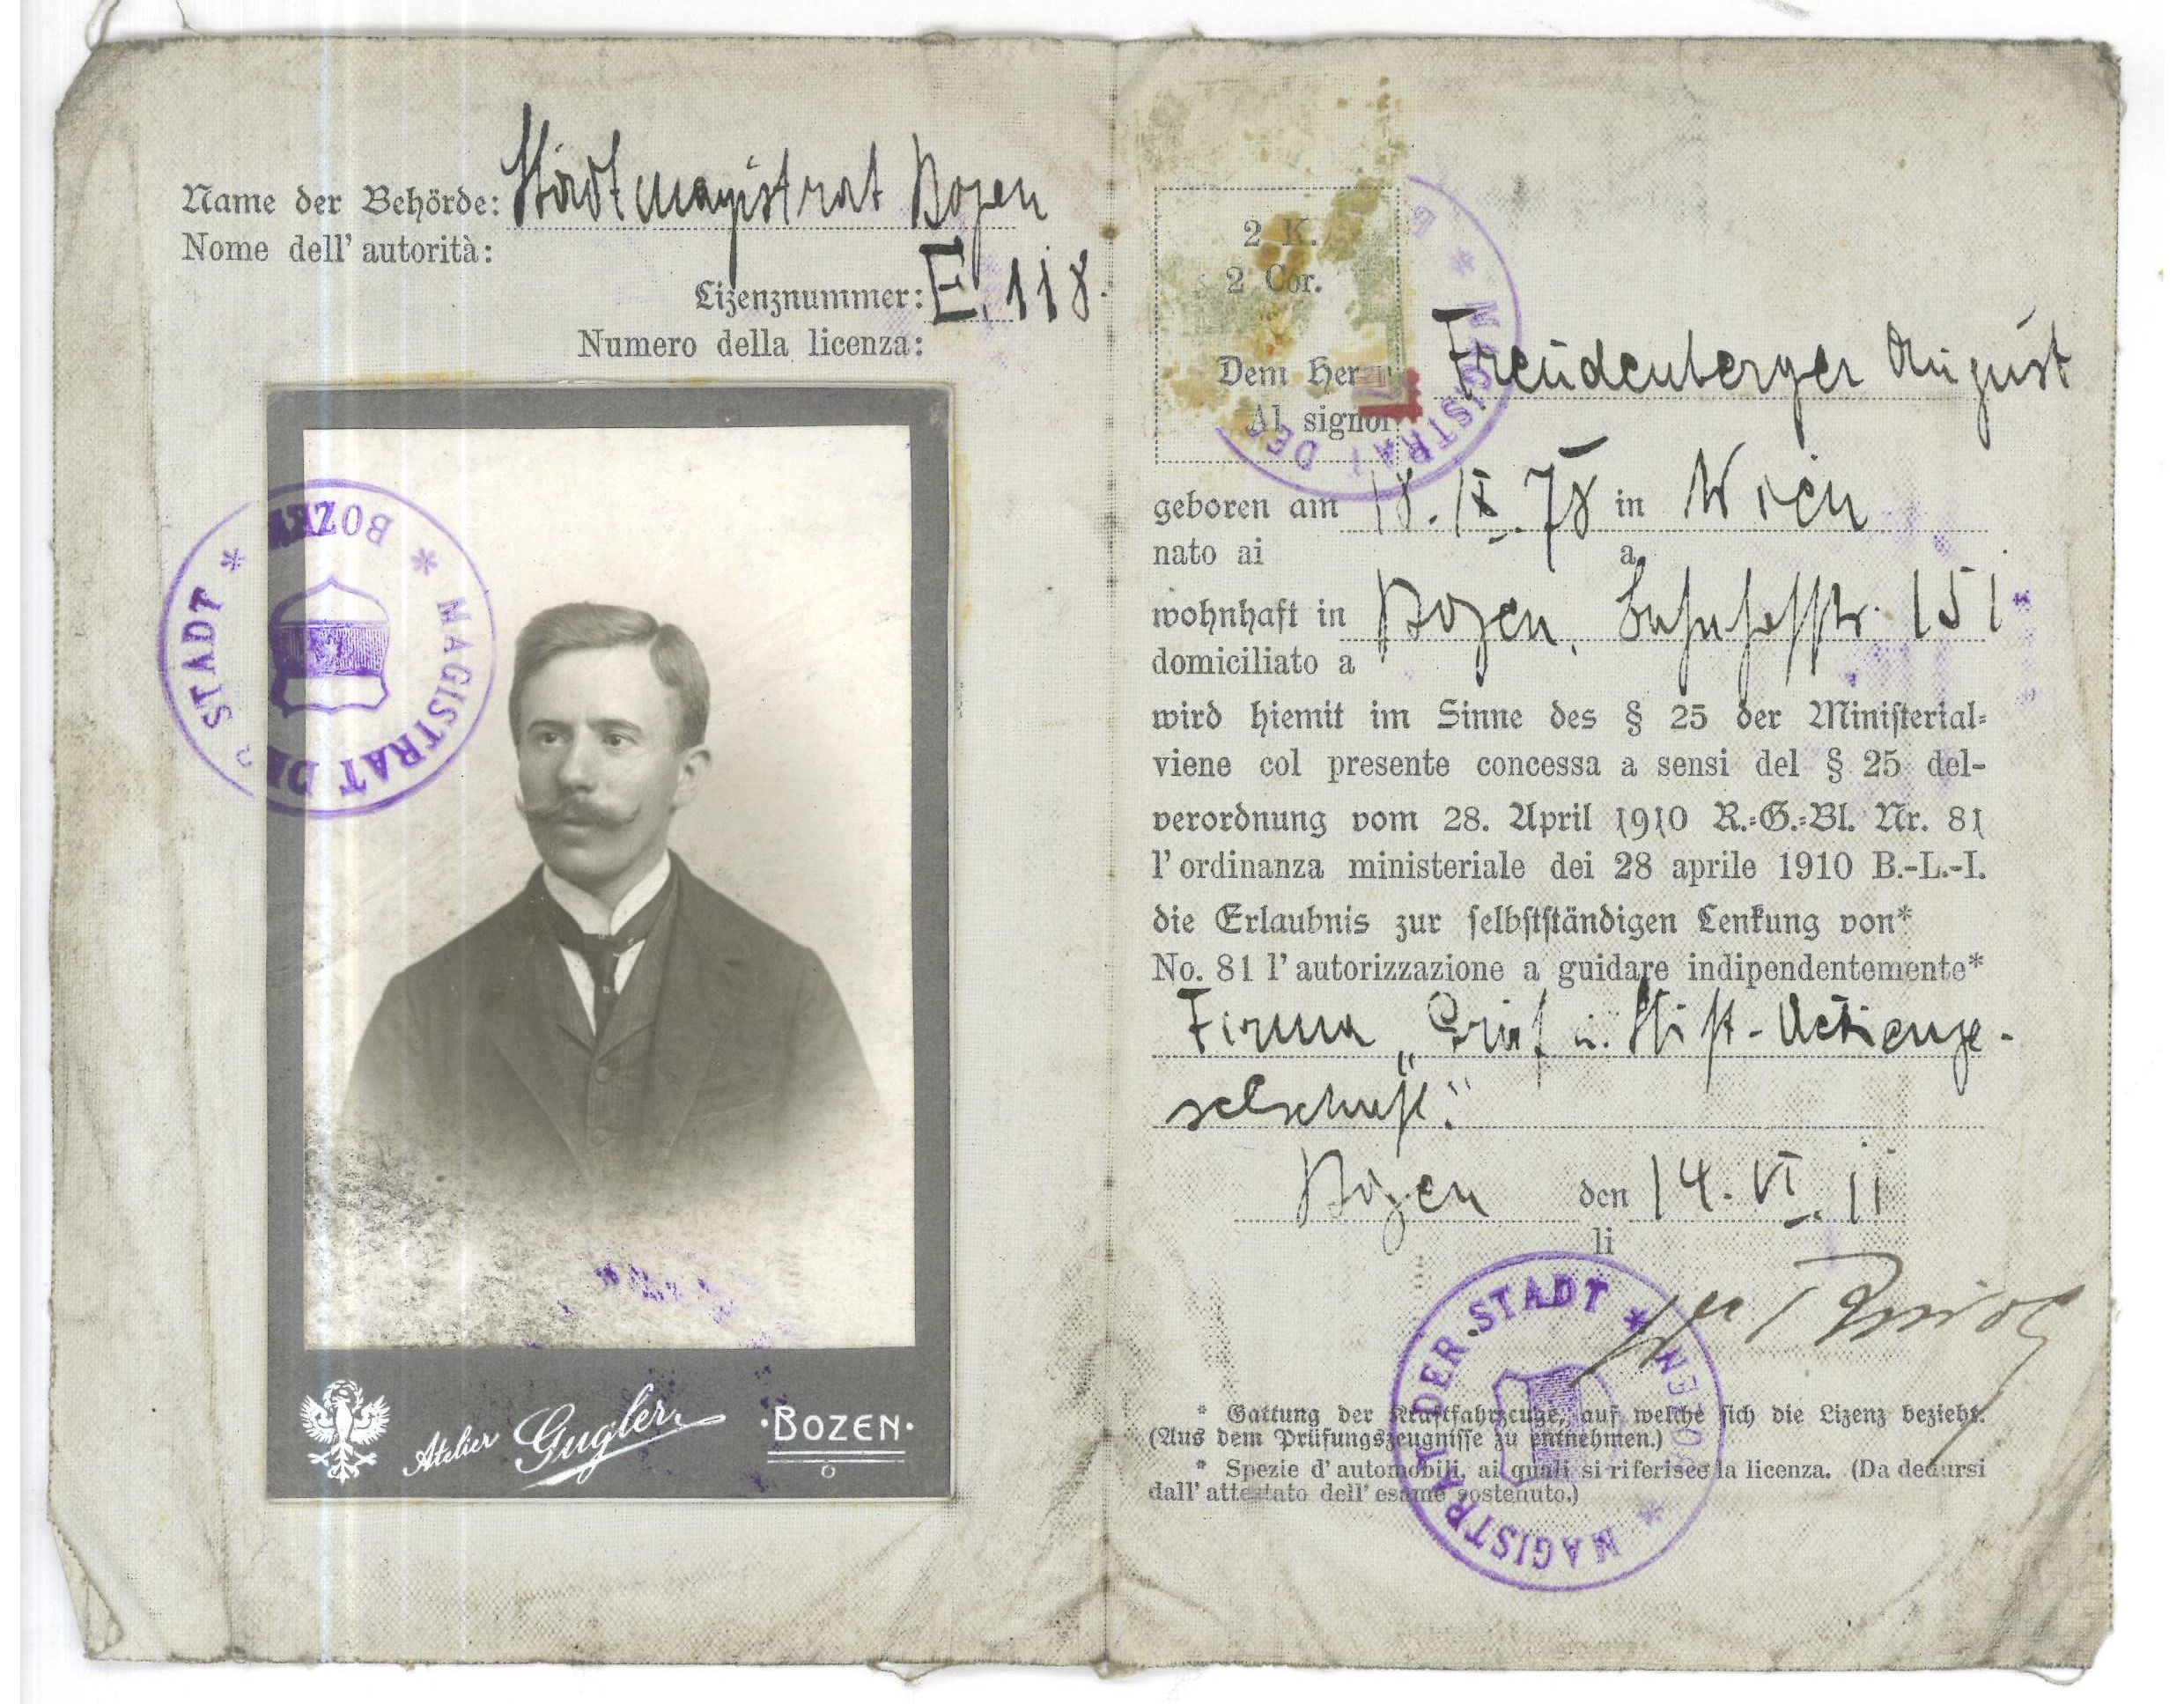 Name der Behörde: Stadtmagistrat Bozen
Nome dell' autorità:
Lizenznummer: E. 118.
Numero della licenza:
BOZEN * MAGISTRAT DER STADT *
Atelier Gugler. ·BOZEN·
2 K.
2 Cor.
MAGISTRAT DER
Dem Herrn Freudenberger August
Al signor
geboren am 18. IX. 78 in Wien
nato ai a
wohnhaft in Bozen, Bahnhofstr. 151
domiciliato a
wird hiemit im Sinne des § 25 der Ministerial-
viene col presente concessa a sensi del § 25 del-
verordnung vom 28. April 1910 R.-G.-Bl. Nr. 81
l' ordinanza ministeriale dei 28 aprile 1910 B.-L.-I.
die Erlaubnis zur selbstständigen Lenkung von*
No. 81 l' autorizzazione a guidare indipendentemente*
Firma „Gräf u. Stift-Actienge-
selschaft."
Bozen den 14. VI. 11
li
MAGISTRAT DER STADT * BOZEN *
* Gattung der Kraftfahrzeuge, auf welche sich die Lizenz bezieht.
(Aus dem Prüfungszeugnisse zu entnehmen.)
* Spezie d' automobili, ai quali si riferisce la licenza. (Da dedursi
dall' attestato dell' esame sostenuto.)